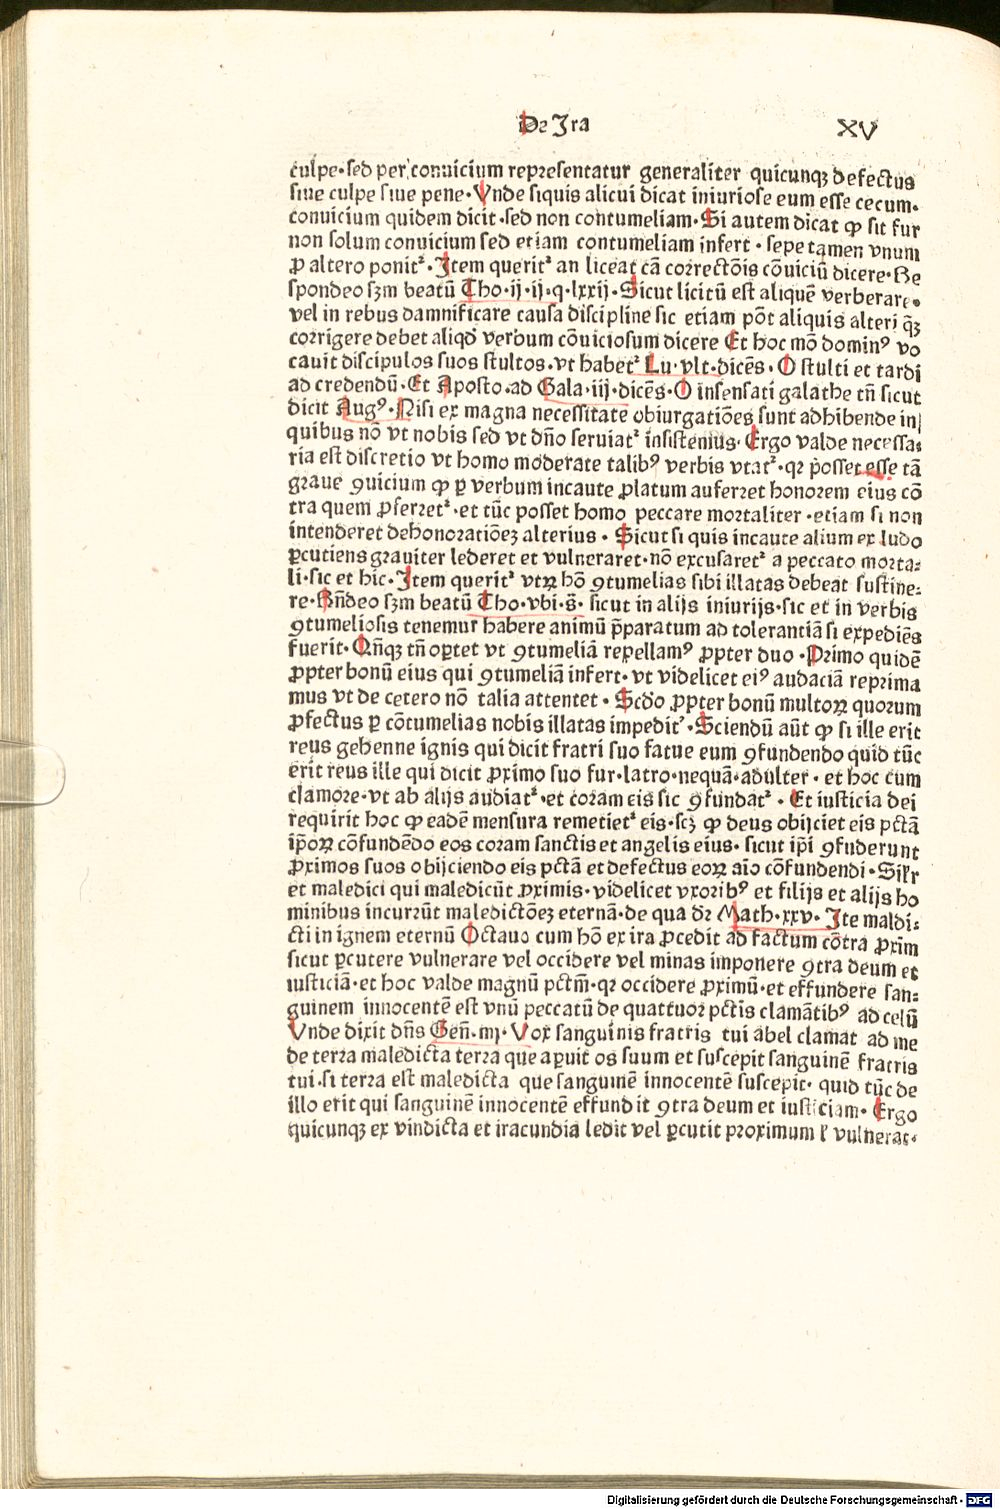 De Ira
XV
culpe·sed per conuicium representatur generaliter quicunqꝫ defectus
siue culpe siue pene·Vnde siquis alicui dicat iniuriose eum esse cecum·
conuicium quidem dicit·sed non contumeliam·Si autem dicat ꝙ sit fur
non solum conuicium sed etiam contumeliam infert·sepe tamen vnum
ꝓ altero ponitᷣ·Item queritᷣ an liceat cā correctōis cōuiciū dicere·Re
spondeo sꝫm beatū Tho·ij·ij·q·lxxij·Sicut licitū est aliquē verberare·
vel in rebus damnificare causa discipline sic etiam pōt aliquis alteri q̄ꝫ
corrigere debet aliqd̕ verbum cōuiciosum dicere Et hoc mō dominꝰ vo
cauit discipulos suos stultos·vt habetᷣ Lu·vlt·dicēs·O stulti et tardi
ad credendū·Et Aposto·ad Gala·iij·dicēs·O insensati galathe tn̄ sicut
dicit Augꝰ·Nisi ex magna necessitate obiurgatiōes sunt adhibende in
quibus nō vt nobis sed vt dn̄o seruiatᷣ insistemus·Ergo valde necessa⸗
ria est discretio vt homo moderate talibꝰ verbis vtatᷣ·qꝛ posset esse tā
graue ꝯuicium ꝙ ꝑ verbum incaute ꝓlatum auferret honorem eius cō
tra quem ꝓferretᷣ·et tūc posset homo peccare mortaliter·etiam si non
intenderet dehonoratiōeꝫ alterius·Sicut si quis incaute alium ex ludo
ꝑcutiens grauiter lederet et vulneraret·nō excusaretᷣ a peccato morta⸗
li·sic et hic·Item queritᷣ vtꝝ hō ꝯtumelias sibi illatas debeat sustine⸗
re·Rn̄deo sꝫm beatū Tho·vbi·s̄·sicut in alijs iniurijs·sic et in verbis
ꝯtumeliosis tenemur habere animū p̄paratum ad tolerantiā si expediēs
fuerit·Qn̄qꝫ tn̄ oꝑtet vt ꝯtumeliā repellamꝰ ꝓpter duo·Primo quidē
ꝓpter bonū eius qui ꝯtumeliā infert·vt videlicet eiꝰ audaciā reprima
mus vt de cetero nō talia attentet·Scd̕o ꝓpter bonū multoꝝ quorum
ꝓfectus ꝑ cōtumelias nobis illatas impeditᷣ·Sciendū aūt ꝙ si ille erit
reus gehenne ignis qui dicit fratri suo fatue eum ꝯfundendo quid tūc
erit reus ille qui dicit ꝓximo suo fur·latro·nequā·adulter·et hoc cum
clamore·vt ab alijs audiatᷣ·et coram eis sic ꝯfundatᷣ·Et iusticia dei
requirit hoc ꝙ eadē mensura remetietᷣ eis·scꝫ ꝙ deus obijciet eis pctā
ip̄oꝝ cōfundēdo eos coram sanctis et angelis eius·sicut ip̄i ꝯfuderunt
ꝓximos suos obijciendo eis pctā et defectus eoꝝ aīo cōfundendi·Sil̕r
et maledici qui maledicūt ꝓximis·videlicet vxoribꝰ et filijs et alijs ho
minibus incurrūt maledictōeꝫ eternā·de qua dꝛ Math·xxv·Ite maldi⸗
cti in ignem eternū Octauo cum hō ex ira ꝓcedit ad factum cōtra ꝓxim
sicut ꝑcutere vulnerare vel occidere vel minas imponere ꝯtra deum et
iusticiā·et hoc valde magnū pctm̄·qꝛ occidere ꝓximū·et effundere san⸗
guinem innocentē est vnū peccatū de quattuor pctīs clamātibꝰ ad celū
Vnde dixit dn̄s Gen̄·iiij·Vox sanguinis fratris tui abel clamat ad me
de terra maledicta terra que aꝑuit os suum et suscepit sanguinē fratris
tui·si terra est maledicta que sanguinē innocentē suscepit·quid tūc de
illo erit qui sanguinē innocentē effundit ꝯtra deum et iusticiam·Ergo
quicunqꝫ ex vindicta et iracundia ledit vel ꝑcutit proximum l̕ vulnerat·
Digitalisierung gefördert durch die Deutsche Forschungsgemeinschaft - DFG